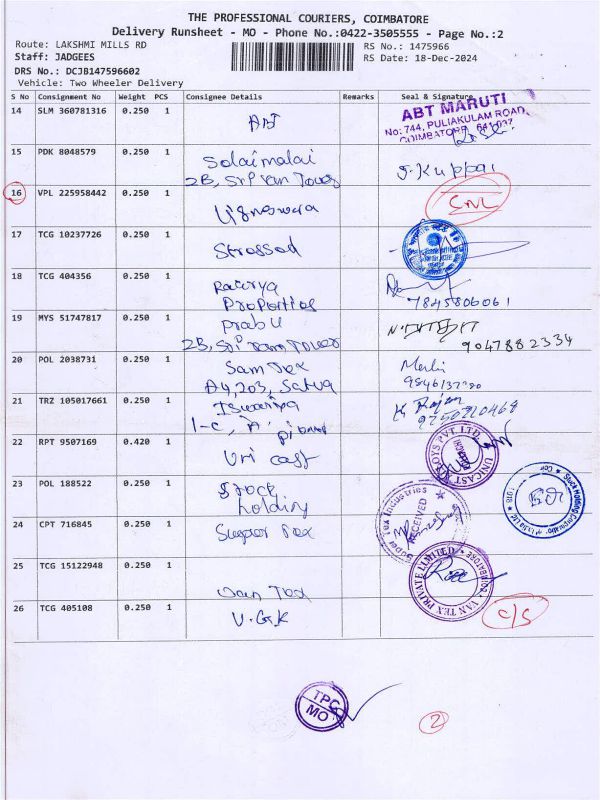 THE PROFESSIONAL COURIERS, COIMBATORE
Delivery Runsheet - MO - Phone No.:0422-3505555 - Page No.:2
Route: LAKSHMI MILLS RD
RS No.: 1475966
Staff: JADGEES
RS Date: 18-Dec-2024
DRS No.: DCJB147596602
Vehicle: Two Wheeler Delivery
S No Consignment No Weight PCS Consignee Details Remarks Seal & Signature
14 SLM 360781316 0.250 1 ABT
ABT MARUTI
No: 744, PULIAKULAM ROAD,
COIMBATORE - 641 037
15 PDK 8048579 0.250 1 Solaimalai
2B, Sri Van Tower
S. Kuppai
16 VPL 225958442 0.250 1 Vigneswara
CNL
17 TCG 10237726 0.250 1 Strossod
18 TCG 404356 0.250 1
Properties
7845806061
19 MYS 51747817 0.250 1 Prabu
2B, Sri Ram Tower
9047882334
20 POL 2038731 0.250 1 Sam Tex
A4, 203, Satva
21 TRZ 105017661 0.250 1 Iswariya
1-C, 'A'
K Rajan
22 RPT 9507169 0.420 1 Uni cast
UNICAST ALLOYS PVT. LTD.
23 POL 188522 0.250 1 Stock
holding
Stock Holding Corporation of India Ltd
24 CPT 716845 0.250 1 Super Tex
Super Tex Industries
RECEIVED
25 TCG 15122948 0.250 1 Van Tex
VAN TEX PRIVATE LIMITED
COIMBATORE
26 TCG 405108 0.250 1 V.G.K
C/S
TPC
MO
2